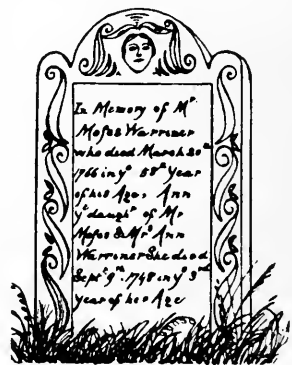 In Memory of Mʳ
Moses Warriner
who died March 20ᵗʰ
1766 in yᵉ 88ᵗʰ Year
of his Age, Ann
yᵉ daughᵗ of Mr
Moses & Mrˢ Ann
Warriner She died
Septᵗ 9ᵗʰ 1748 in yᵉ 3ʳᵈ
year of her Age